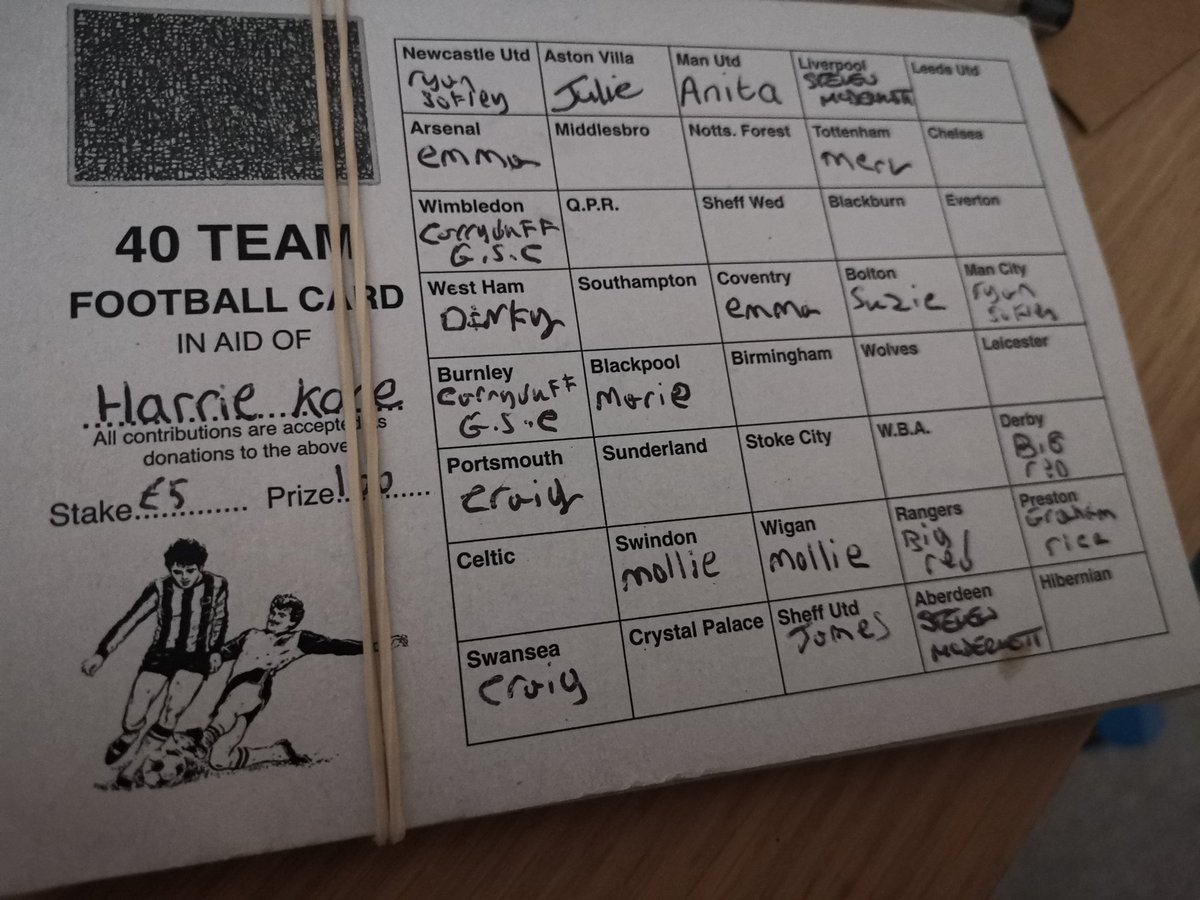 40 TEAM
FOOTBALL CARD
IN AID OF
Harrie
All contributions are accepted as
donations to the above
Stake £5 Prize
Newcastle Utd
ryan
Aston Villa
Julie
Man Utd
Anita
Liverpool
STEVEN
McDERMOTT
Leeds Utd
Arsenal
emma
Middlesbro
Notts. Forest
Tottenham
merv
Chelsea
Wimbledon
Carryduff
G.S.C
Q.P.R.
Sheff Wed
Blackburn
Everton
West Ham
Dinky
Southampton
Coventry
emma
Bolton
Suzie
Man City
ryan
Burnley
Carryduff
G.S.C
Blackpool
Marie
Birmingham
Wolves
Leicester
Portsmouth
Craig
Sunderland
Stoke City
W.B.A.
Derby
Big
red
Celtic
Swindon
mollie
Wigan
mollie
Rangers
Big
red
Preston
Graham
rice
Swansea
Craig
Crystal Palace
Sheff Utd
James
Aberdeen
STEVEN
McDERMOTT
Hibernian